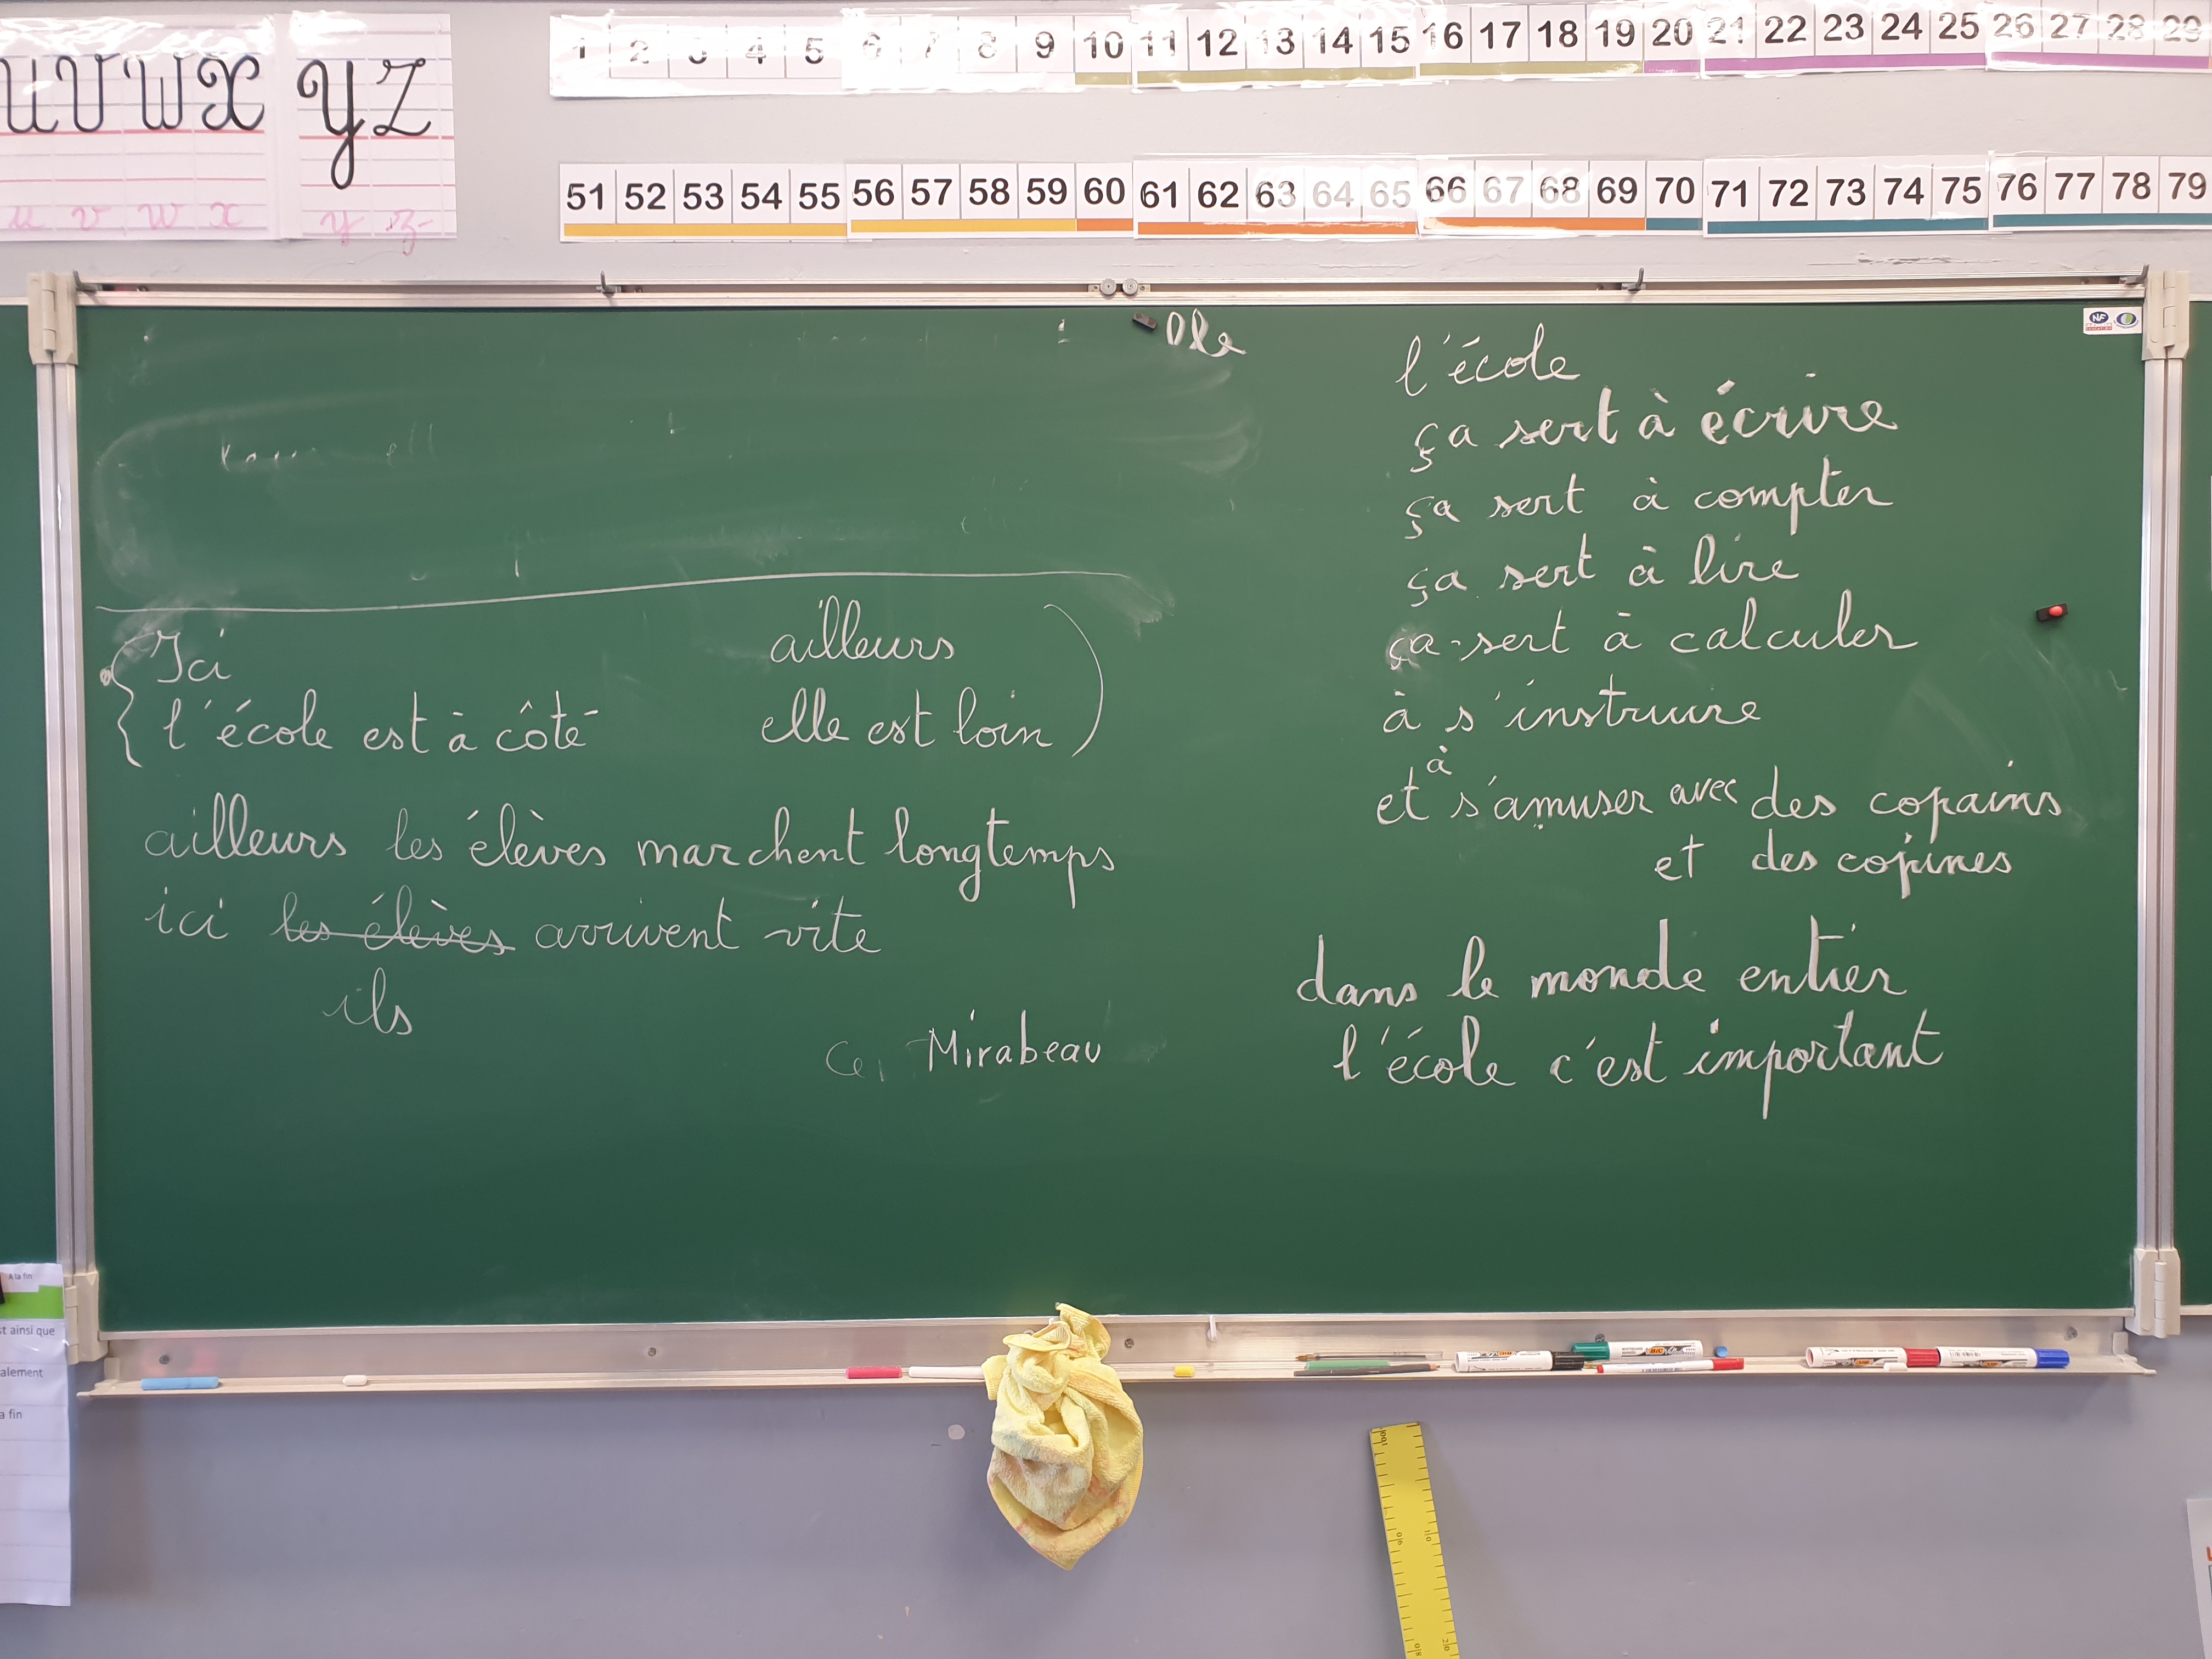 U V W X Y Z
u v w x y z
1 2 3 4 5 6 7 8 9 10 11 12 13 14 15 16 17 18 19 20 21 22 23 24 25 26 27 28 29
51 52 53 54 55 56 57 58 59 60 61 62 63 64 65 66 67 68 69 70 71 72 73 74 75 76 77 78 79
NF
Ici ailleurs
l'école est à côté elle est loin
ailleurs les élèves marchent longtemps
ici les élèves arrivent vite
ils
Mirabeau
l'école
ça sert à écrire
ça sert à compter
ça sert à lire
ça-sert à calculer
à s'instruire
à
et s'amuser avec des copains
et des copines
dans le monde entier
l'école c'est important
A la fin
st ainsi que
alement
a fin